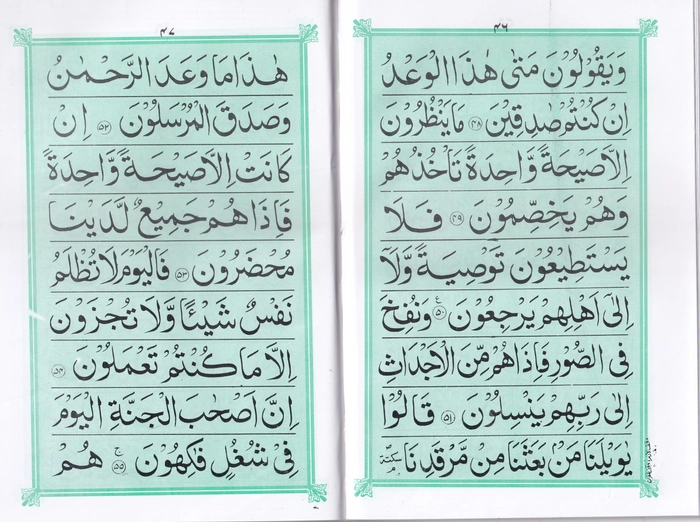 ۴۶
وَيَقُوۡلُوۡنَ مَتٰى هٰذَا الۡوَعۡدُ
اِنۡ كُنۡتُمۡ صٰدِقِيۡنَ ۴۸ مَا يَنۡظُرُوۡنَ
اِلَّا صَيۡحَةً وَّاحِدَةً تَاۡخُذُهُمۡ
وَهُمۡ يَخِصِّمُوۡنَ ۴۹ فَلَا
يَسۡتَطِيۡعُوۡنَ تَوۡصِيَةً وَّلَاۤ
اِلٰٓى اَهۡلِهِمۡ يَرۡجِعُوۡنَ ۵۰ ع وَنُفِخَ
فِى الصُّوۡرِ فَاِذَا هُمۡ مِّنَ الۡاَجۡدَاثِ
اِلٰى رَبِّهِمۡ يَنۡسِلُوۡنَ ۵۱ قَالُوۡا
يٰوَيۡلَنَا مَنۡۢ بَعَثَنَا مِنۡ مَّرۡقَدِنَا سكتة
۴۷
هٰذَا مَا وَعَدَ الرَّحۡمٰنُ
وَصَدَقَ الۡمُرۡسَلُوۡنَ ۵۲ اِنۡ
كَانَتۡ اِلَّا صَيۡحَةً وَّاحِدَةً
فَاِذَا هُمۡ جَمِيۡعٌ لَّدَيۡنَا
مُحۡضَرُوۡنَ ۵۳ فَالۡيَوۡمَ لَا تُظۡلَمُ
نَفۡسٌ شَيۡـئًا وَّلَا تُجۡزَوۡنَ
اِلَّا مَا كُنۡتُمۡ تَعۡمَلُوۡنَ ۵۴
اِنَّ اَصۡحٰبَ الۡجَنَّةِ الۡيَوۡمَ
فِىۡ شُغُلٍ فٰكِهُوۡنَ ۵۵ ج هُمۡ